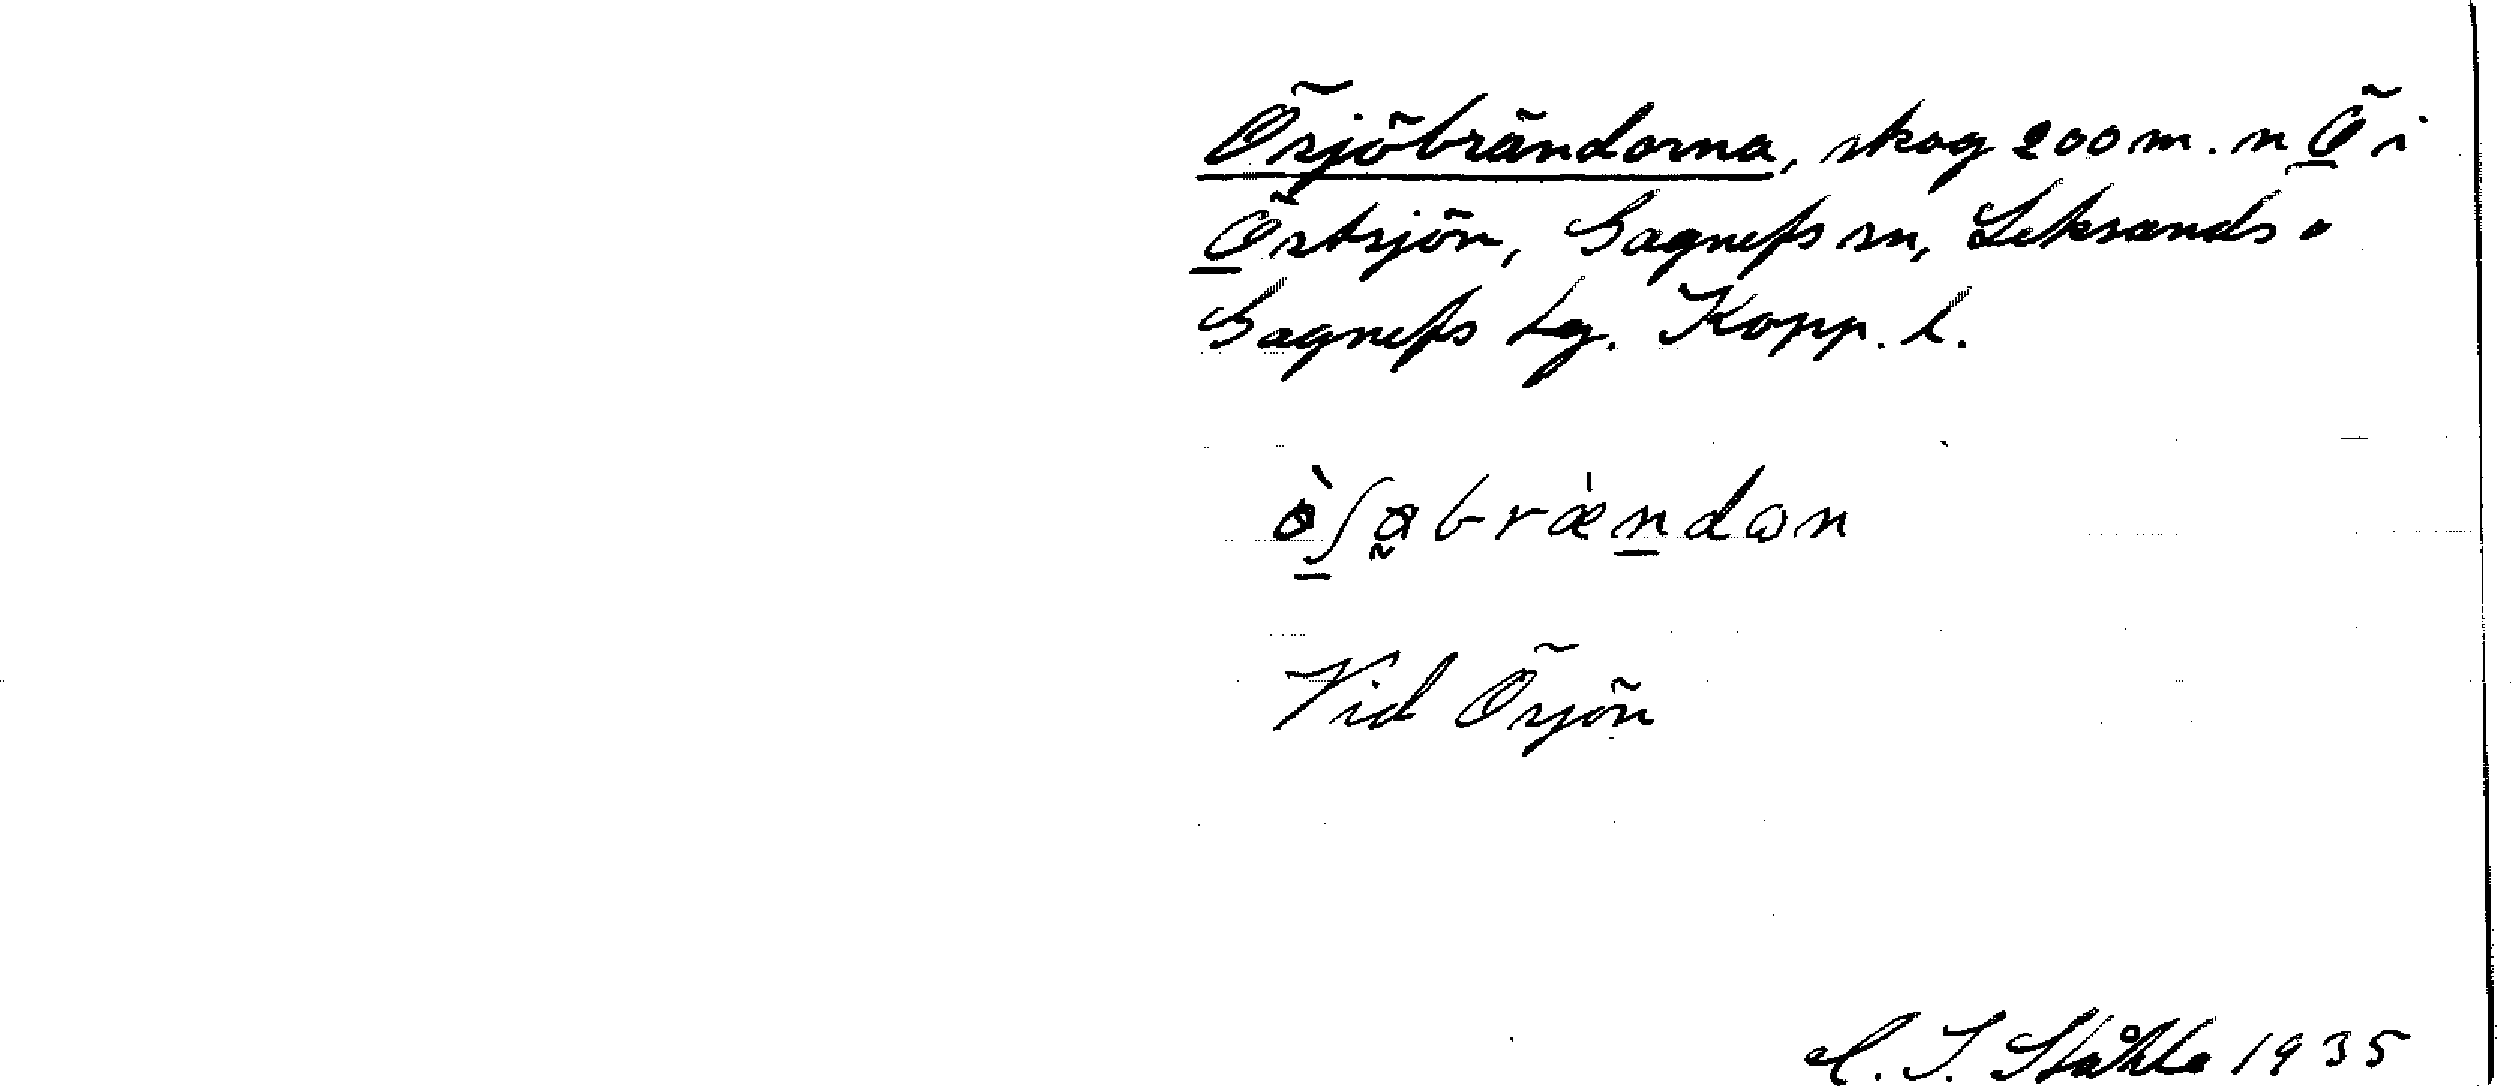 Ösjöbrändorna, skog 200 m. n Ö i
Östsjön, Gagnefs sn, Leksands o
Gagnefs tg. Kopp. l.
Vid Ösjön
C. I. Ståhle 1935